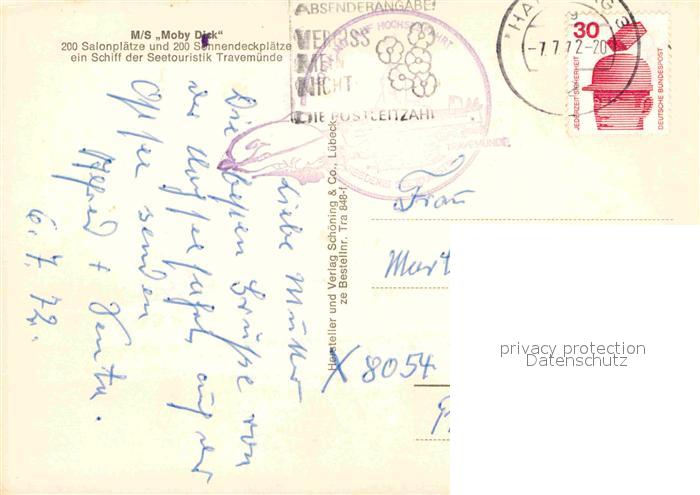 M/S „Moby Dick"
200 Salonplätze und 200 Sonnendeckplätze
ein Schiff der Seetouristik Travemünde
ABSENDERANGABE!
VERGISS
MEIN
NICHT
DIE POSTLEITZAHL
TRAVEMÜNDE
-7.7.72-20
30
JEDERZEIT SICHERHEIT
DEUTSCHE BUNDESPOST
Liebe Mutter
Die besten Grüße von
der auf der
Ostsee senden
Alfred +
6.7.72.
Hersteller und Verlag Schöning & Co., Lübeck
ze Bestellnr. Tra 848-f
Frau
Mart
X 8054
privacy protection
Datenschutz